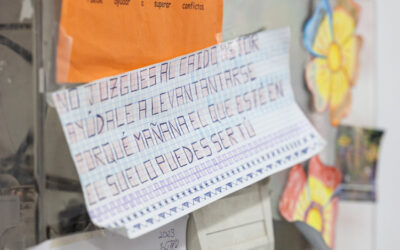 ayudar a superar conflictos
NO JUZGUES AL CAIDO MEJOR
AYÚDALE A LEVANTANTARSE
PORQUÉ MAÑANA EL QUE ESTÉ EN
EL SUELO PUEDES SERTÚ